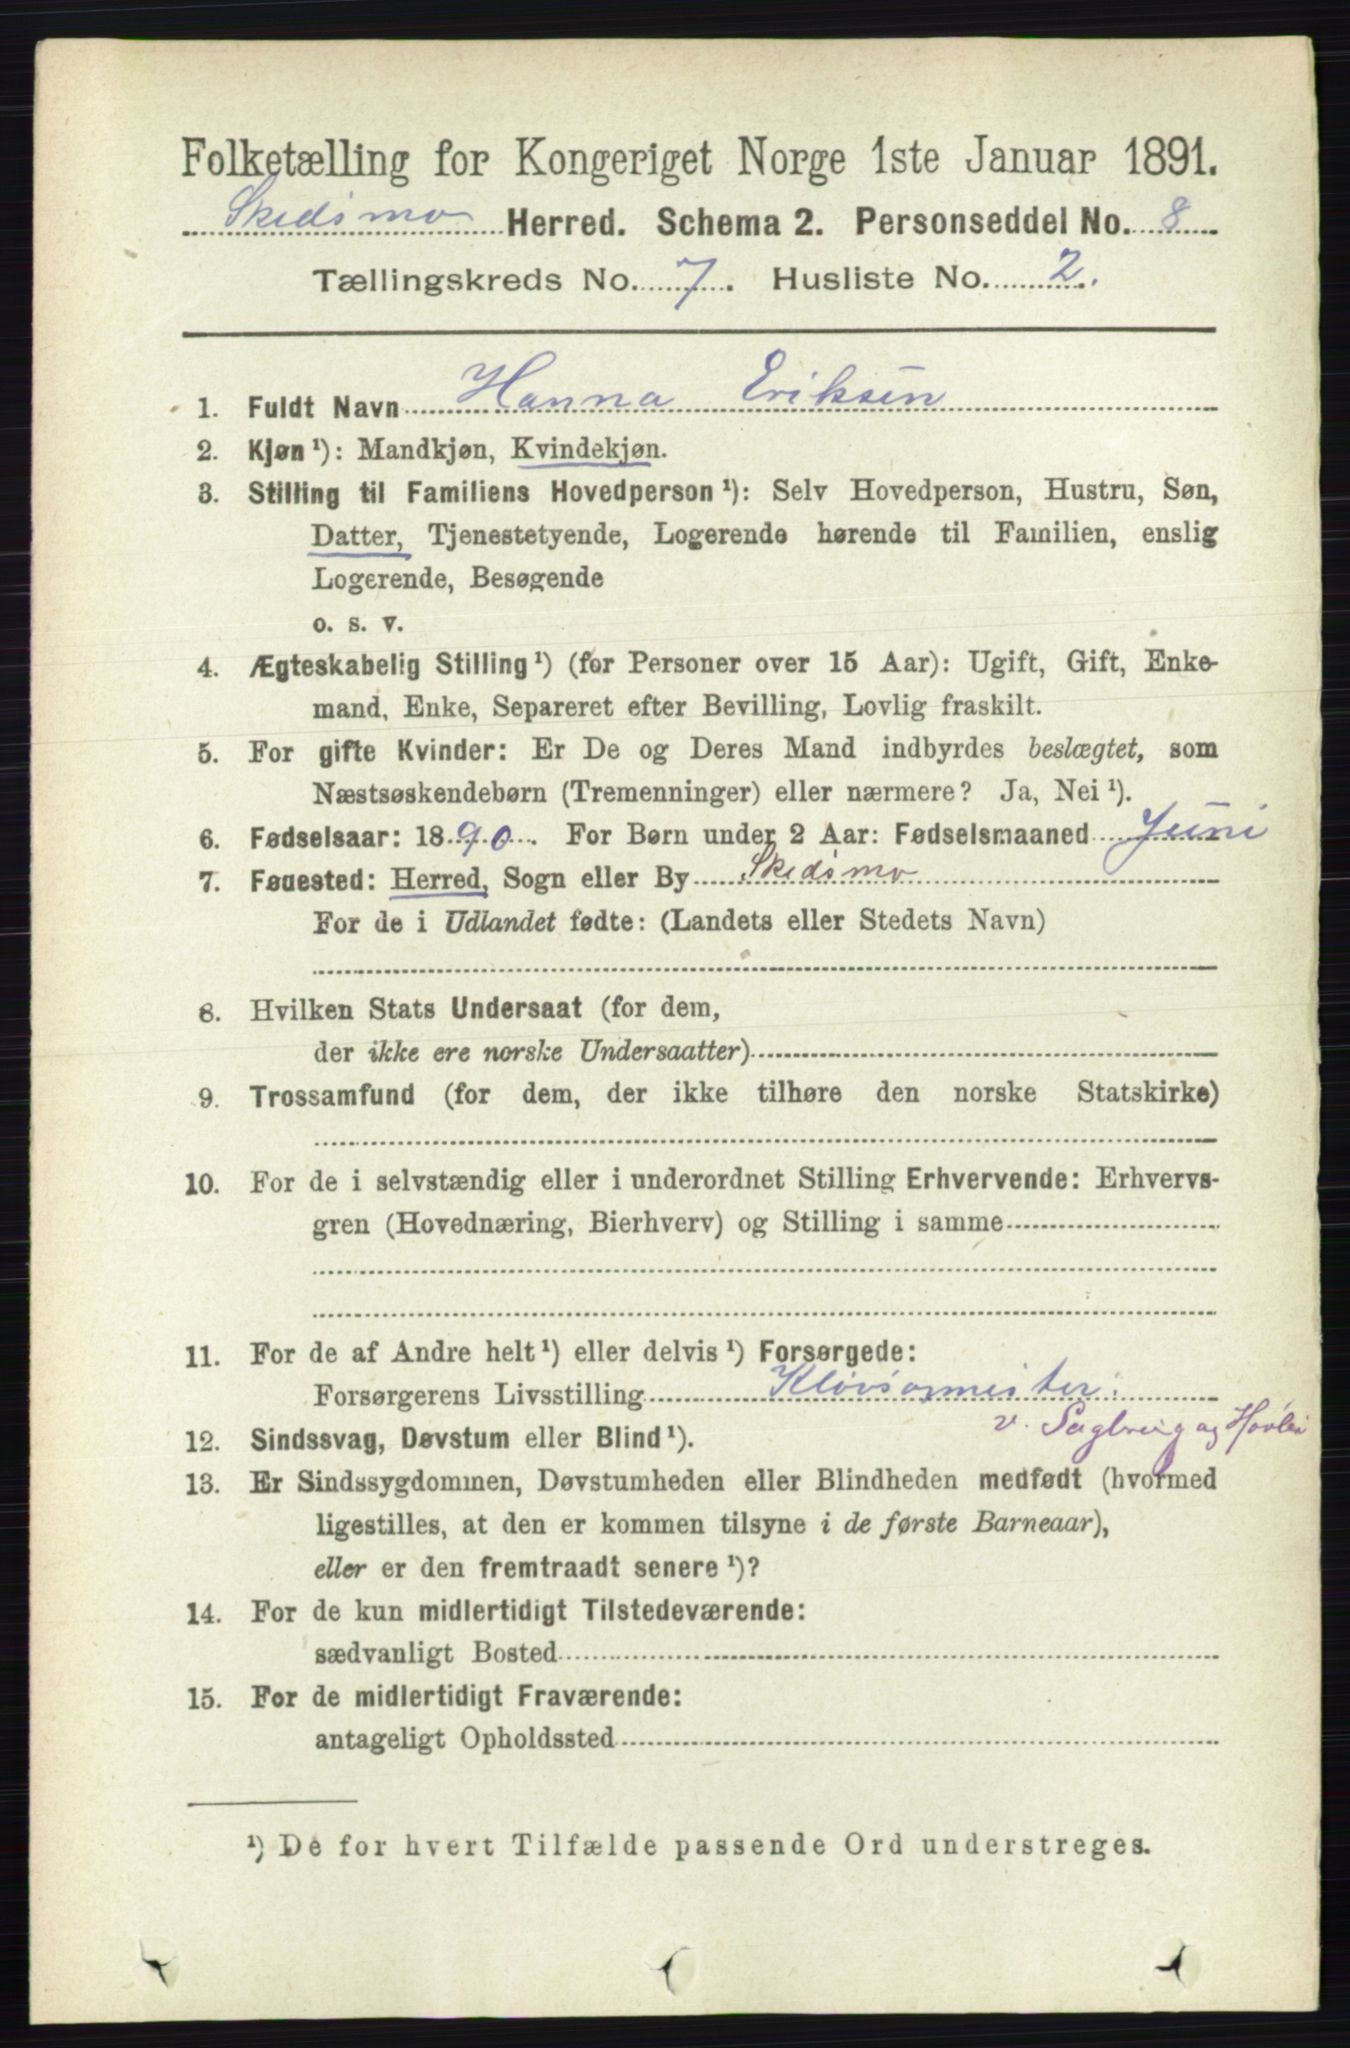 Folketælling for Kongeriget Norge 1ste Januar 1891.
Skedsmo Herred. Schema 2. Personseddel No. 8
Tællingskreds No. 7. Husliste No. 2.
1. Fuldt Navn Hanna Eriksen
2. Kjøn ¹): Mandkjøn, Kvindekjøn.
3. Stilling til Familiens Hovedperson ¹): Selv Hovedperson, Hustru, Søn,
Datter, Tjenestetyende, Logerende hørende til Familien, enslig
Logerende, Besøgende
o. s. v.
4. Ægteskabelig Stilling ¹) (for Personer over 15 Aar): Ugift, Gift, Enke-
mand, Enke, Separeret efter Bevilling, Lovlig fraskilt.
5. For gifte Kvinder: Er De og Deres Mand indbyrdes beslægtet, som
Næstsøskendebørn (Tremenninger) eller nærmere? Ja, Nei ¹).
6. Fødselsaar: 1890. For Børn under 2 Aar: Fødselsmaaned Juni
7. Fødested: Herred, Sogn eller By Skedsmo
For de i Udlandet fødte: (Landets eller Stedets Navn)
8. Hvilken Stats Undersaat (for dem,
der ikke ere norske Undersaatter)
9. Trossamfund (for dem, der ikke tilhøre den norske Statskirke)
10. For de i selvstændig eller i underordnet Stilling Erhvervende: Erhvervs-
gren (Hovednæring, Bierhverv) og Stilling i samme
11. For de af Andre helt ¹) eller delvis ¹) Forsørgede:
Forsørgerens Livsstilling
v. Sagbrug og Høvleri
12. Sindssvag, Døvstum eller Blind ¹).
13. Er Sindssygdommen, Døvstumheden eller Blindheden medfødt (hvormed
ligestilles, at den er kommen tilsyne i de første Barneaar),
eller er den fremtraadt senere ¹)?
14. For de kun midlertidigt Tilstedeværende:
sædvanligt Bosted
15. For de midlertidigt Fraværende:
antageligt Opholdssted
¹) De for hvert Tilfælde passende Ord understreges.